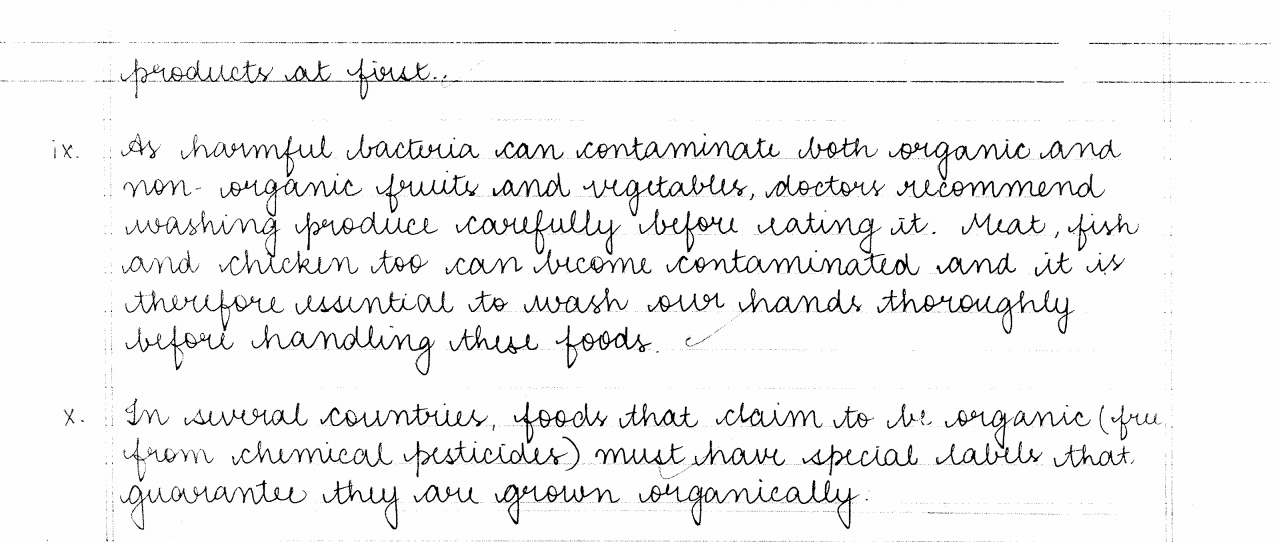 products at first..
ix. As harmful bacteria can contaminate both organic and
non- organic fruits and vegetables, doctors recommend
washing produce carefully before eating it. Meat, fish
and chicken too can become contaminated and it is
therefore essential to wash our hands thoroughly
before handling these foods.
x. In several countries, foods that claim to be organic (free
from chemical pesticides) must have special labels that
guarantee they are grown organically.